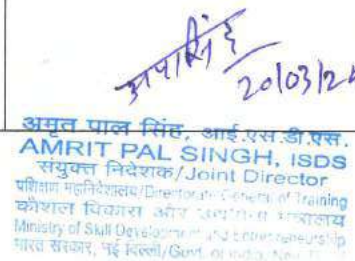 20/03/2
अमृत पाल सिंह, आई.एस.डी.एस.
AMRIT PAL SINGH, ISDS
संयुक्त निदेशक/Joint Director
महानिदेशालय/Directorate General of Training
कौशल विकास और मंत्रालय
Ministry of Skill Development and Entrepreneurship
भारत सरकार, नई दिल्ली/Govt. of India, New